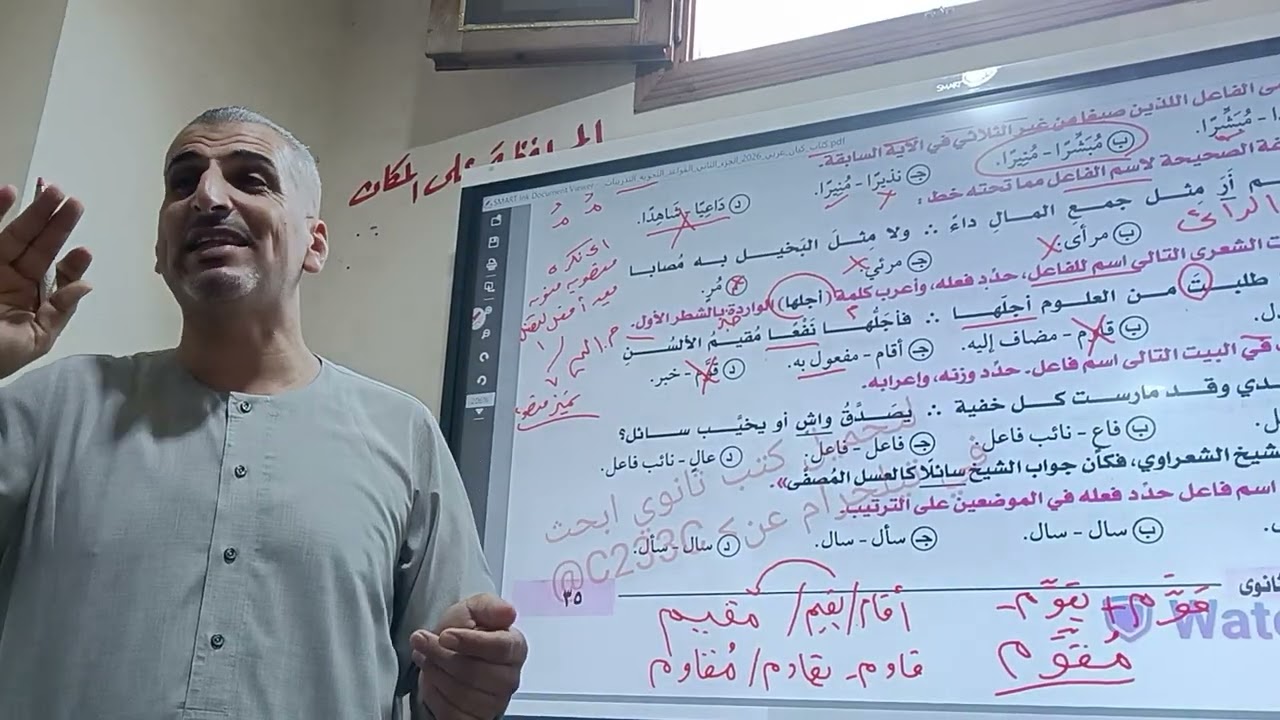 المحافظة على المكان
SMART
SMART Ink Document Viewer
كتاب_كيان_عربي_2026_الجزء_الثاني_القواعد_النحوية_التدريبات.pdf
الفاعل اللذين صيغا من غير الثلاثي في الآية السابقة.
مُبَشِّرًا.
ب مُبَشِّرًا - مُنِيرًا.
ج نذيرًا - مُنِيرًا.
د دَاعِيًا - شَاهِدًا.
الصحيحة لاسم الفاعل مما تحته خط :
أرَ مِثل جمعِ المالِ داءً ∴ ولا مِثلَ البَخيل به مُصابا
الرائي
ب مرأى.
ج مرئي.
د مُرٍ.
الشعري التالي اسم للفاعل، حدّد فعله، وأعرب كلمة (أجلها) الواردة بالشطر الأول.
طلبتَ من العلوم أجلَّها ∴ فأجَلُّها نَفْعًا مُقيمُ الألسُنِ
ب قاوم - مضاف إليه.
ج أقام - مفعول به.
د قوَّم - خبر.
في البيت التالي اسم فاعل. حدّد وزنه، وإعرابه.
وقد مارست كل خفية ∴ يصَدَّقُ واشٍ أو يخيَّب سائل؟
ب فاع - نائب فاعل.
ج فاعل - فاعل.
د عالٍ - نائب فاعل.
الشعراوي، فكأن جواب الشيخ سائلًا كالعسل المُصفّى».
اسم فاعل حدّد فعله في الموضعين على الترتيب.
ب سال - سال.
ج سأل - سال.
د سال - سأل.
لتحميل كتب ثانوي ابحث
@C2
٣٥
قوَّم - يقوِّم -
مُقوِّم
أقام / يقيم / مقيم
قاوم - يقاوم / مُقاوم